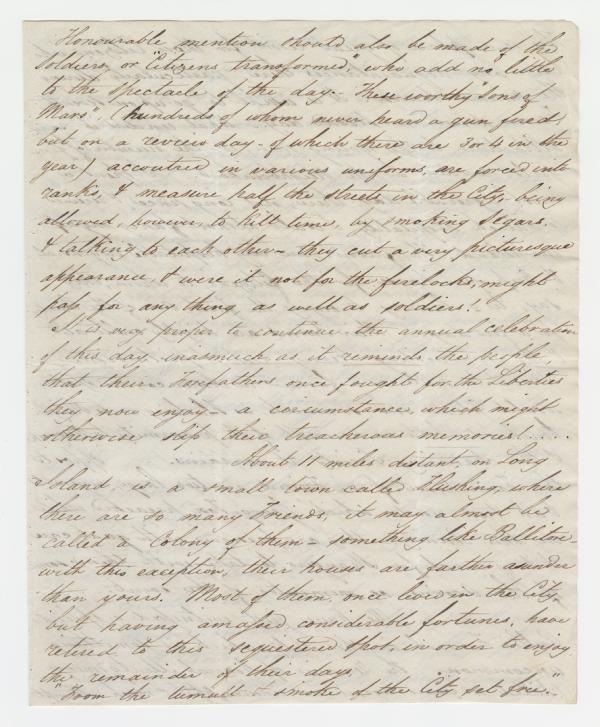 Honourable mention should also be made of the
soldiers, or "Citizens transformed," who add no little
to the spectacle of the day. These worthy "Sons of
Mars", (hundreds of whom never heard a gun fired
but on a review day - of which there are 3 or 4 in the
year) accoutred in various uniforms, are forced into
ranks, & measure half the streets in the City, being
allowed, however, to kill time, by smoking segars,
& talking to each other - they cut a very picturesque
appearance, & were it not for the firelocks, might
pass for any thing as well as soldiers!
It is very proper to continue the annual celebration
of this day, inasmuch as it reminds the people,
that their Forefathers once fought for the Liberties
they now enjoy - a circumstance, which might
otherwise slip their treacherous memories! ....
About 11 miles distant, on Long
Island, is a small town called Flushing, where
there are so many Friends, it may almost be
called a Colony of them - something like Ballitore -
with this exception, their houses are farther asunder
than yours. Most of them once lived in the City,
but having amassed considerable fortunes, have
retired to this sequestered spot, in order to enjoy
the remainder of their days,
"From the tumult & smoke of the City set free."